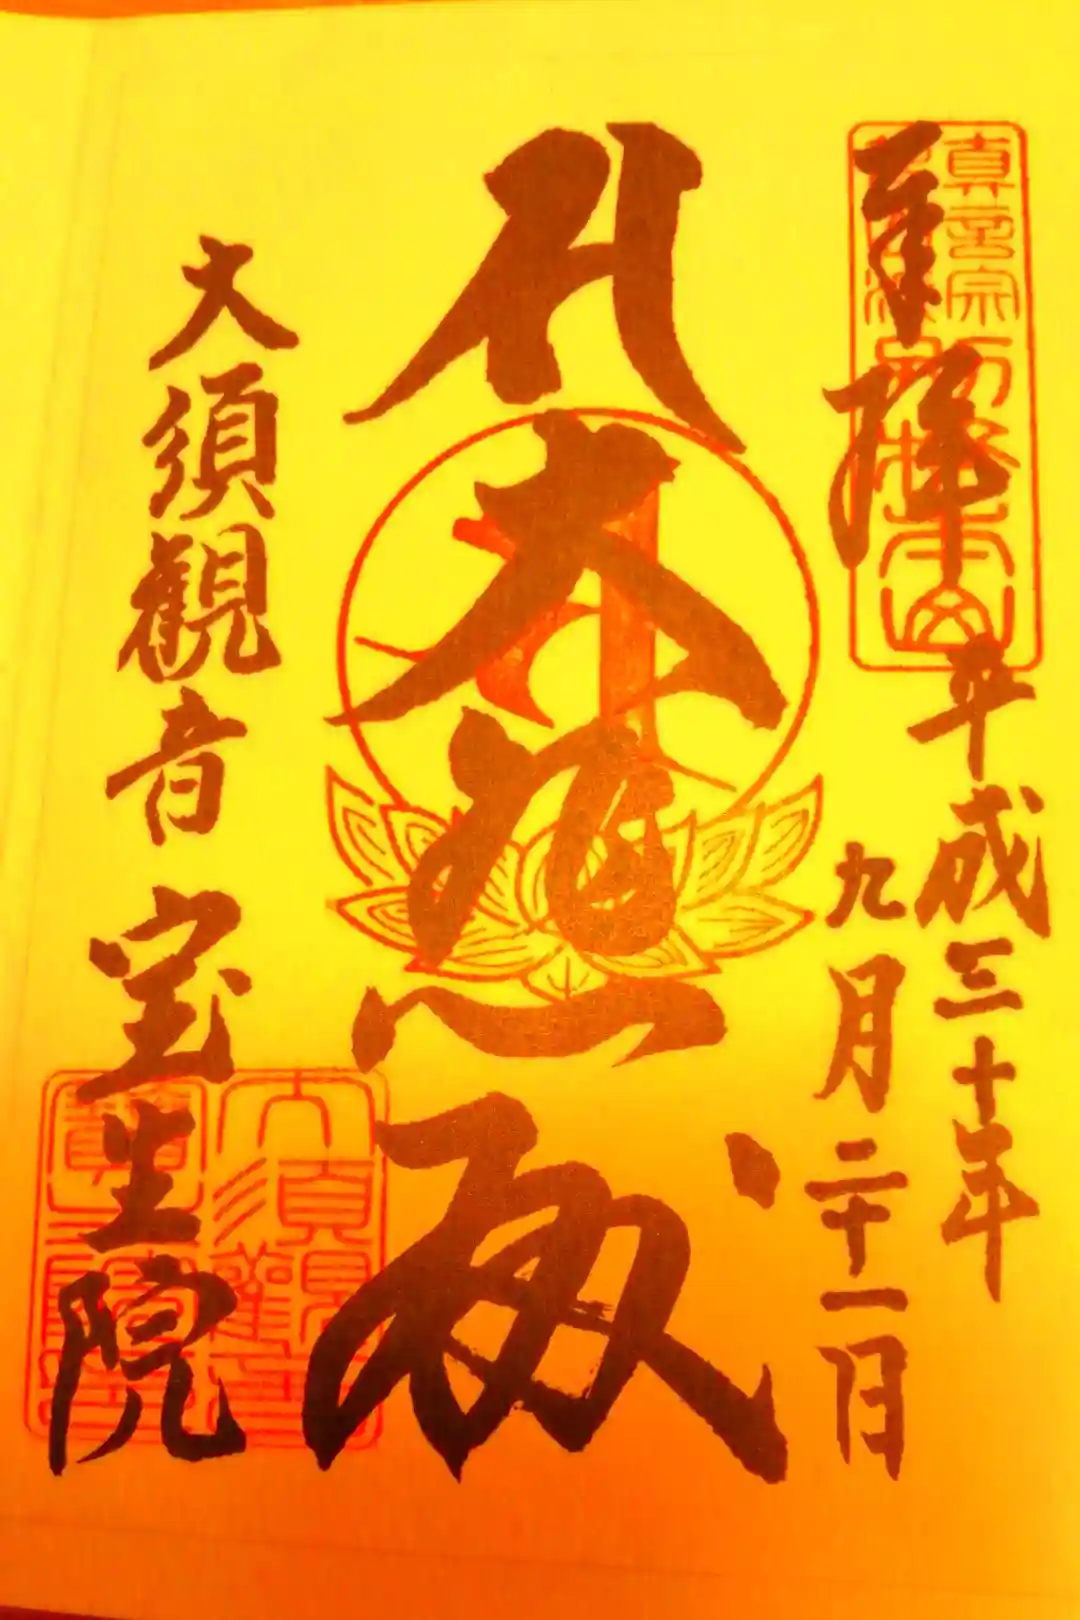 奉拝
真言宗
別格本山
平成三十年
九月二十一日
大悲殿
大須観音
宝生院
大須観音